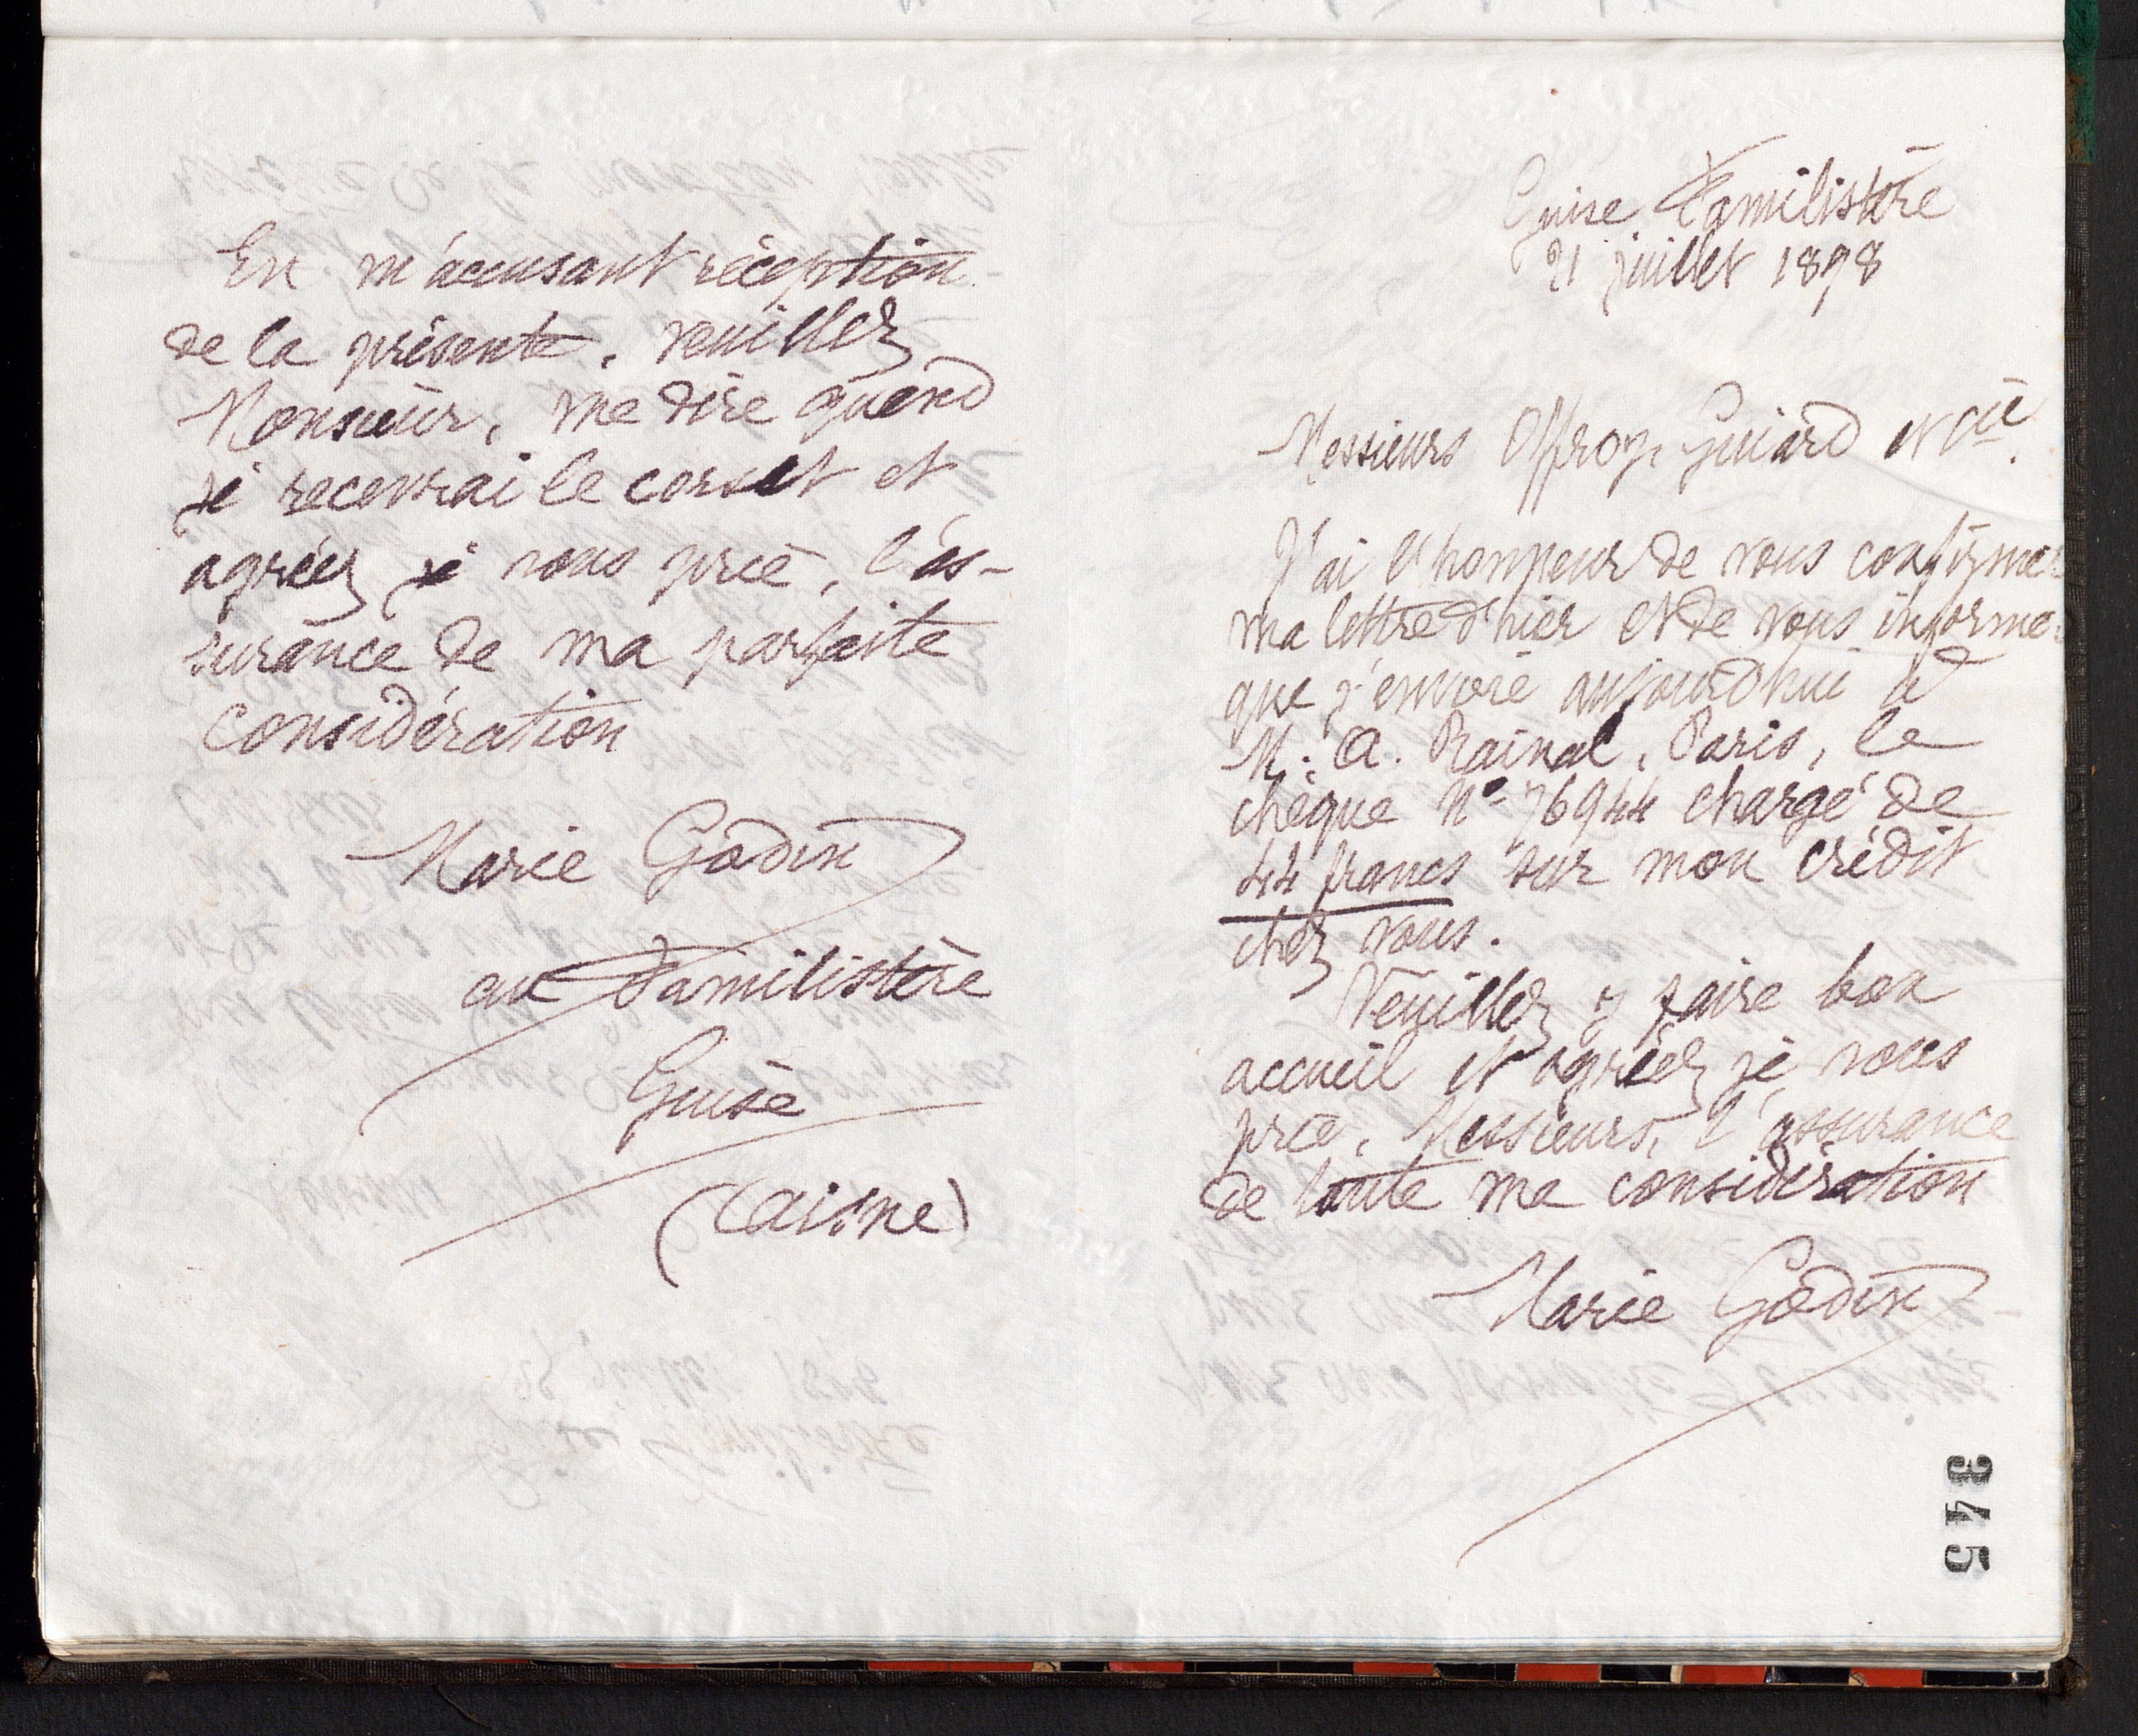 En m'accusant réception
de la présente, veuillez,
Monsieur, me dire quand
je recevrai le corset et
agréez, je vous prie, l'as-
surance de ma parfaite
considération
Marie Godin
au Familistère
Guise
(Aisne)
Guise Familistère
21 juillet 1898
Messieurs Offroy, Guiard et Cie.
J'ai l'honneur de vous confirmer
ma lettre d'hier et de vous informer
que j'envoie aujourd'hui à
M. A. Rainal, Paris, le
chèque No 76944 chargé de
44 francs sur mon crédit
chez vous.
Veuillez y faire bon
accueil et agréez, je vous
prie, Messieurs, l'assurance
de toute ma considération
Marie Godin
345